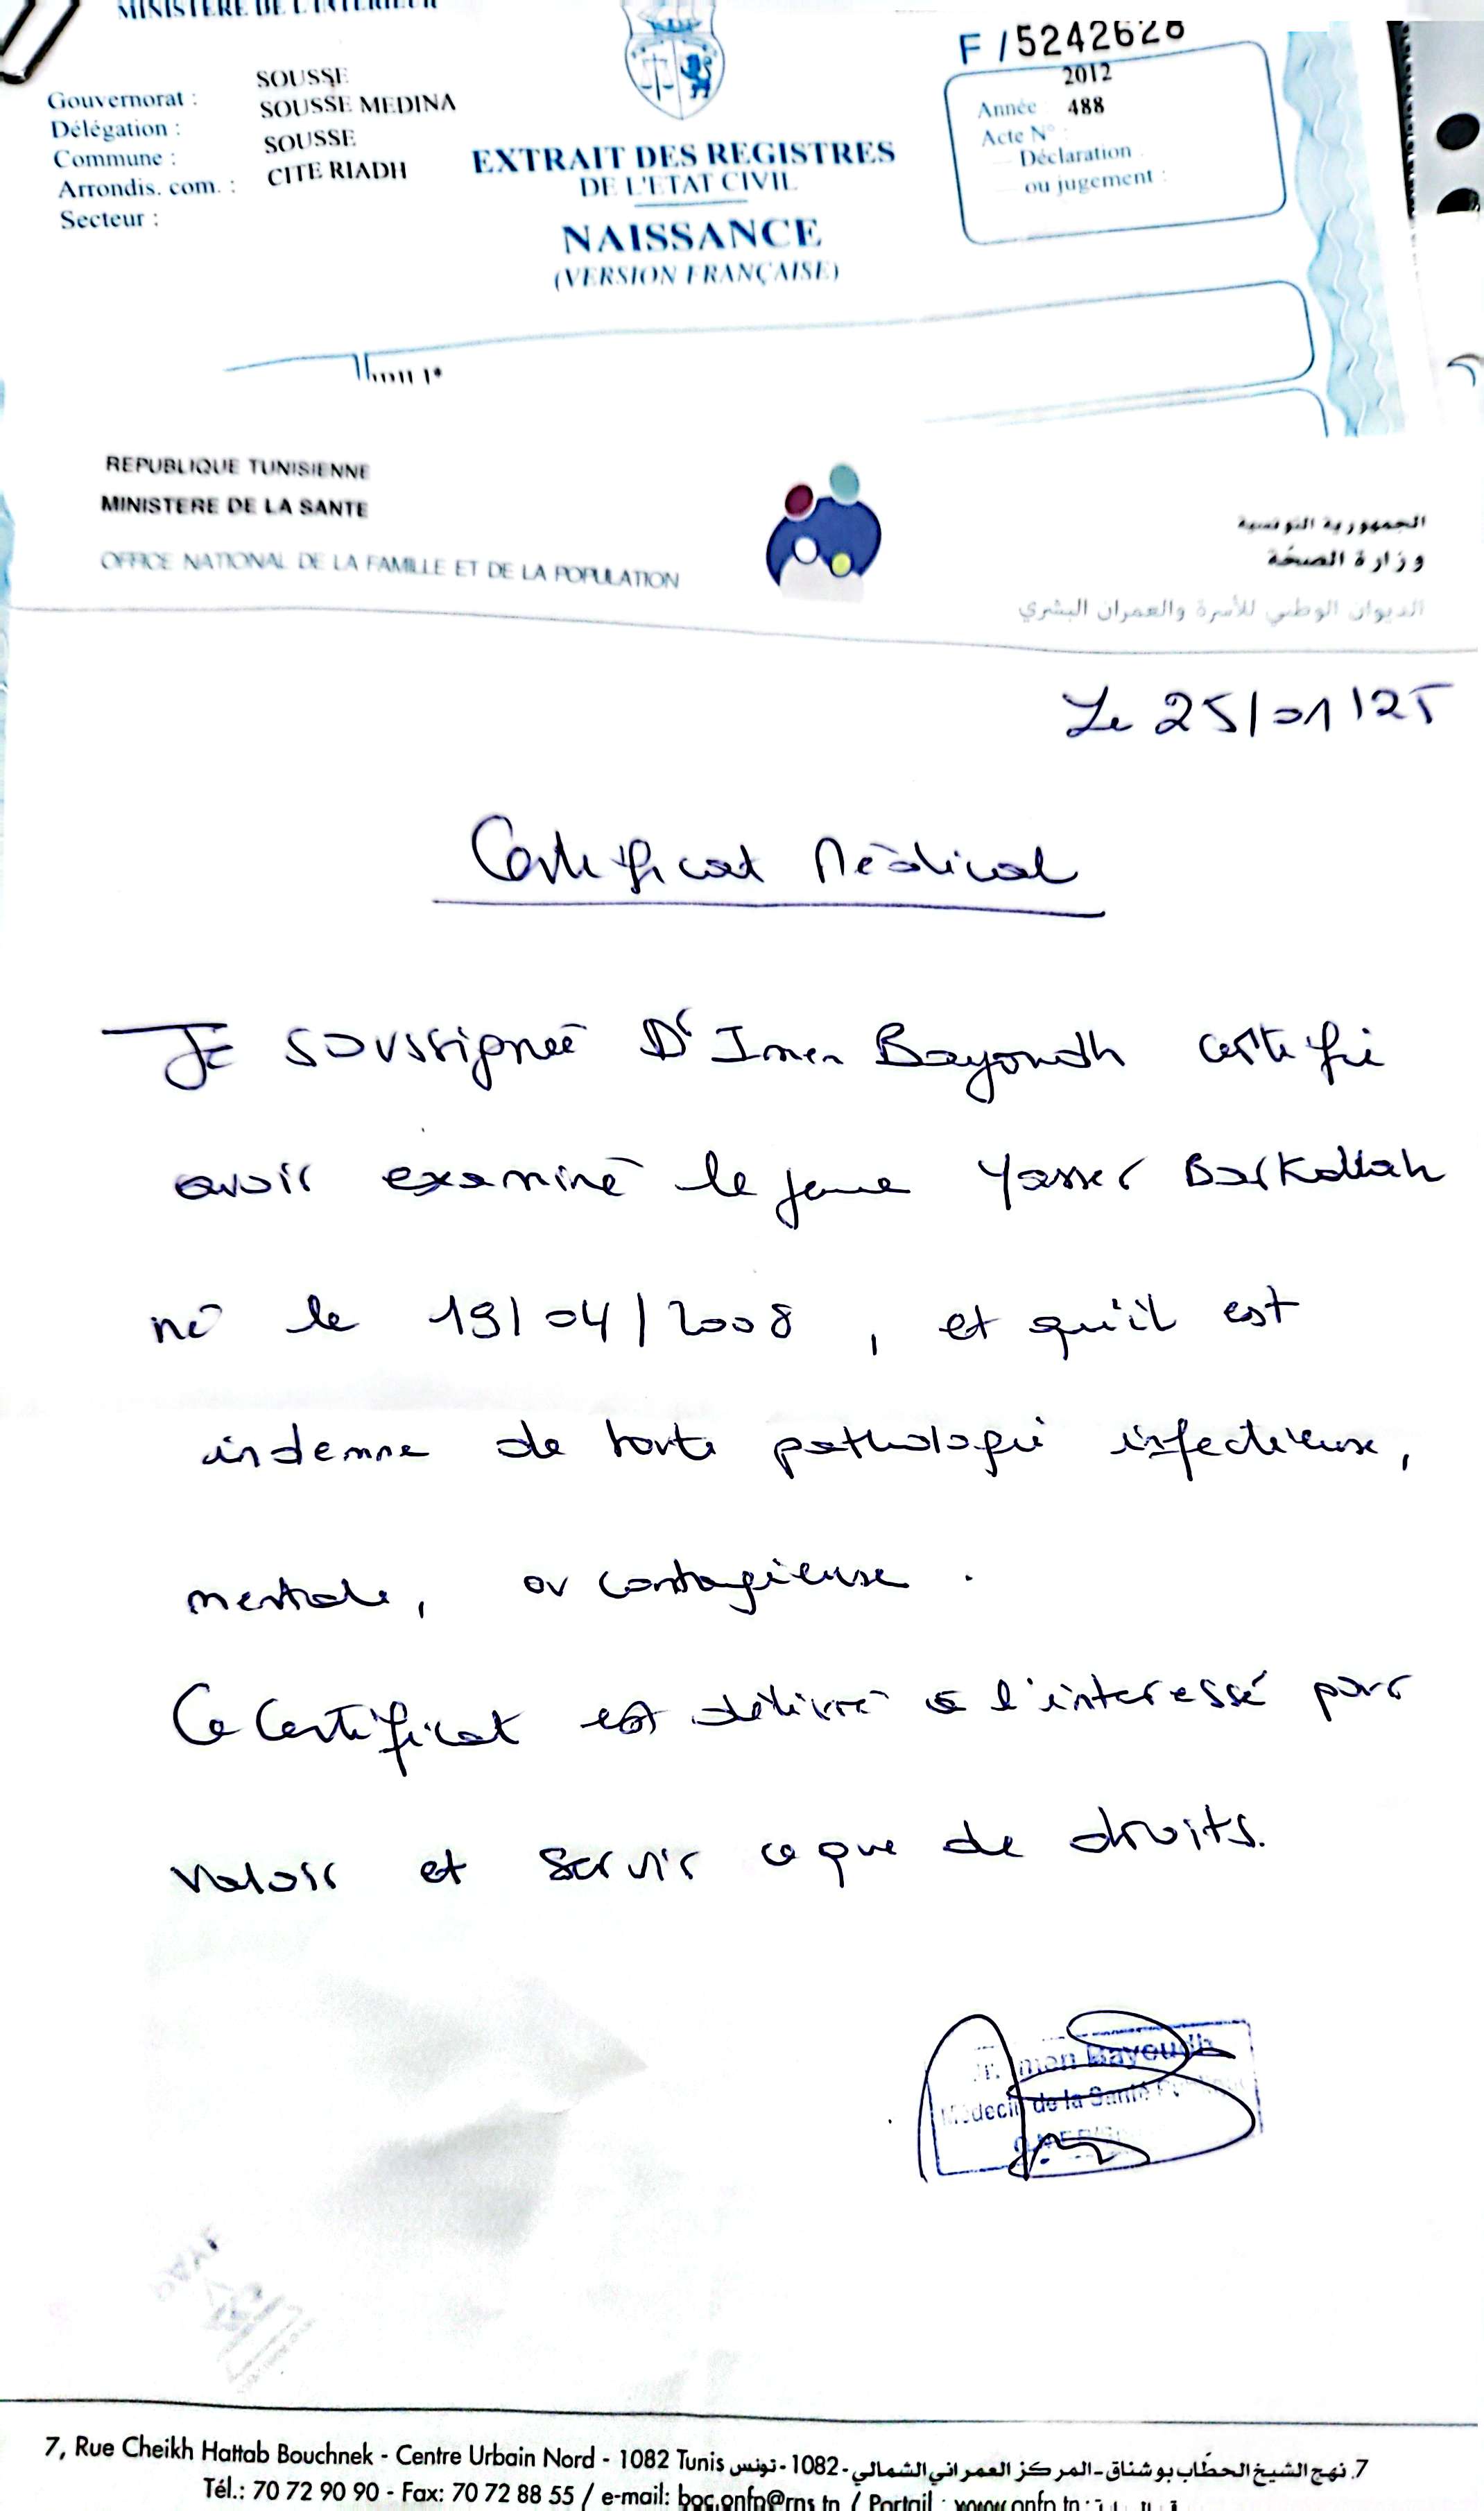 MINISTERE DE L'INTERIEUR
Gouvernorat : SOUSSE
Délégation : SOUSSE MEDINA
Commune : SOUSSE
Arrondis. com. : CITE RIADH
Secteur :
EXTRAIT DES REGISTRES
DE L'ETAT CIVIL
NAISSANCE
(VERSION FRANÇAISE)
F / 5242628
2012
Année 488
Acte N° :
Déclaration
ou jugement :
REPUBLIQUE TUNISIENNE
MINISTERE DE LA SANTE
OFFICE NATIONAL DE LA FAMILLE ET DE LA POPULATION
الجمهورية التونسية
وزارة الصحّة
الديوان الوطني للأسرة والعمران البشري
Le 25/01/25
Certificat Médical
Je soussignée Dr Imen Bayoudh certifie
avoir examiné le jeune Yasser Barkallah
né le 19/04/2008, et qu'il est
indemne de toute pathologie infectieuse,
mentale, ou contagieuse.
Ce certificat est délivré à l'interessé pour
valoir et servir ce que de droits.
Bayoudh
Médecin de la Santé
7, Rue Cheikh Hattab Bouchnek - Centre Urbain Nord - 1082 Tunis 7. نهج الشيخ الحطّاب بوشناق-المركز العمراني الشمالي-1082-تونس
Tél.: 70 72 90 90 - Fax: 70 72 88 55 / e-mail: boc.onfp@rns.tn / Portail : www.onfp.tn